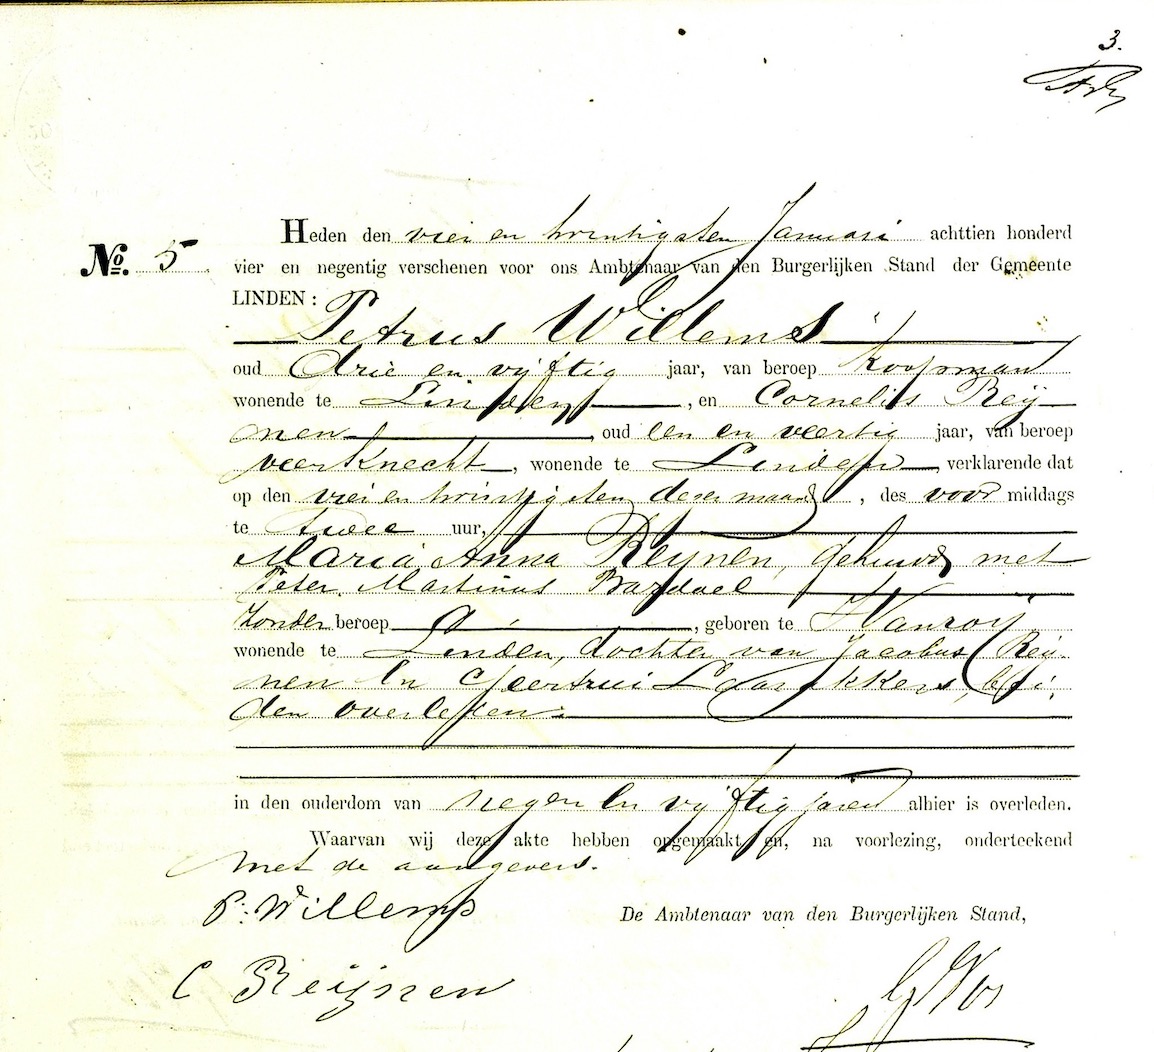 3.
Heden den vier en twintigsten Januari achttien honderd
No. 5
vier en negentig verschenen voor ons Ambtenaar van den Burgerlijken Stand der Gemeente
LINDEN:
Petrus Willems
oud drie en vijftig jaar, van beroep koopman
wonende te Linden, en Cornelis Reij
nen, oud een en veertig jaar, van beroep
veerknecht, wonende te Linden, verklarende dat
op den vier en twintigsten dezer maand, des voor middags
te twee uur,
Maria Anna Reijnen, gehuwd met
Peter Martinus
zonder beroep, geboren te Wanroij
wonende te Linden, dochter van Jacobus Reij
nen en Geertrui bei
den overleden.
in den ouderdom van negen en vijftig jaren alhier is overleden.
Waarvan wij deze akte hebben opgemaakt en, na voorlezing, onderteekend
met de aangevers.
P: Willems
De Ambtenaar van den Burgerlijken Stand,
C Reijnen
Vos